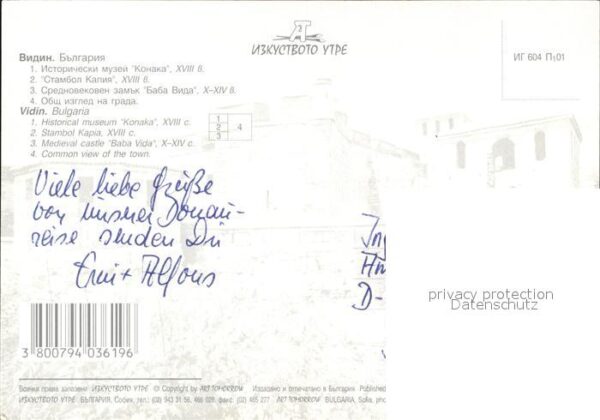 ИЗКУСТВОТО УТРЕ
Видин. България
1. Исторически музей "Конака", XVIII в.
2. "Стамбол Капия", XVIII в.
3. Средновековен замък "Баба Вида", X-XIV в.
4. Общ изглед на града.
Vidin. Bulgaria
1. Historical museum "Konaka", XVIII c.
2. Stambol Kapia, XVIII c.
3. Medieval castle "Baba Vida", X-XIV c.
4. Common view of the town.
1
2
3
4
ИГ 604 П 01
Viele liebe Grüße
von unserer Donau-
reise senden Dir
+ Alfons
D-
privacy protection
Datenschutz
3 800794 036196
Всички права запазени ИЗКУСТВОТО УТРЕ © Copyright by ART TOMORROW Издадено и отпечатано в България Published
ИЗКУСТВОТО УТРЕ БЪЛГАРИЯ, София, тел. ART TOMORROW BULGARIA, Sofia,